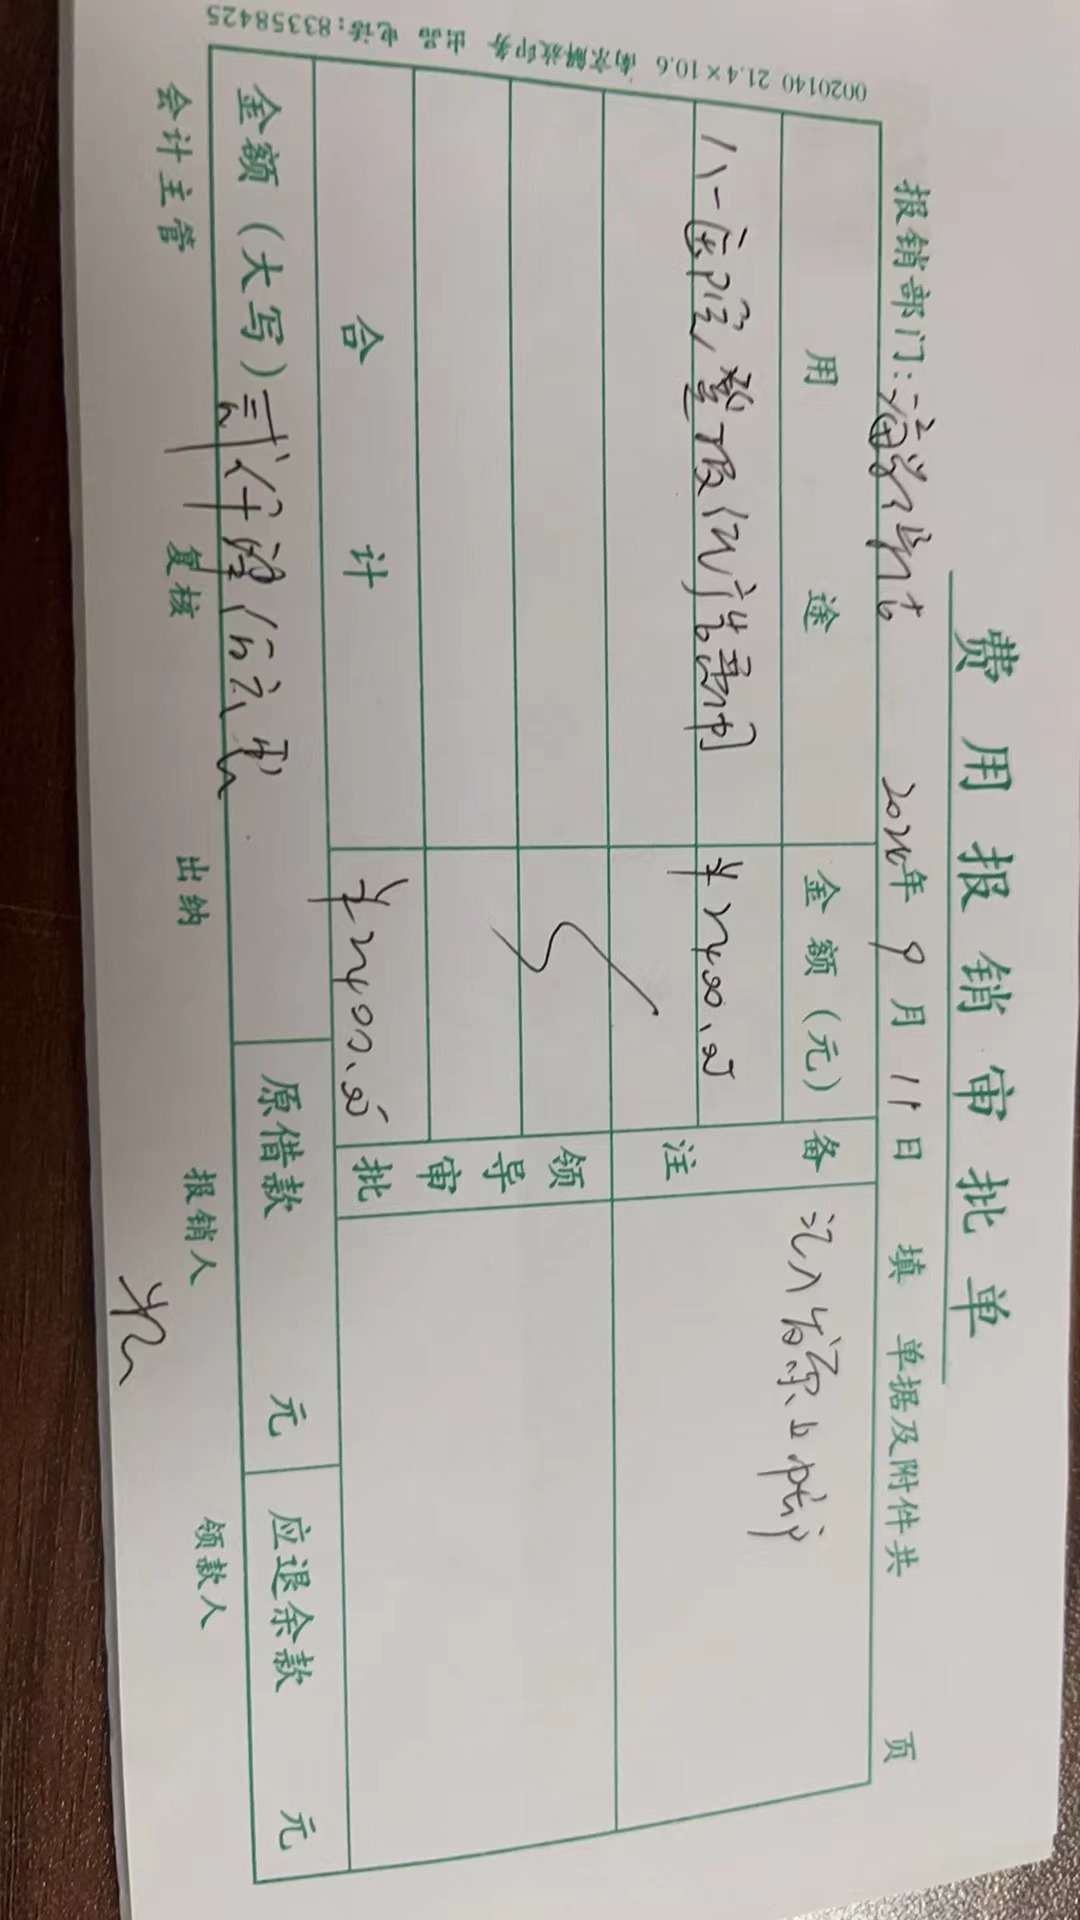 费用报销审批单
报销部门: 2024年9月11日 填 单据及附件共 页
用途 金额(元) 备注
八一医院, 整 ¥2400.00
领导审批
合计 ¥2400.00
金额(大写) 贰仟肆佰元整 原借款 元 应退余款 元
会计主管 复核 出纳 报销人 领款人
0020140 21.4×10.6 南京解放印务 出品 电话:83358425